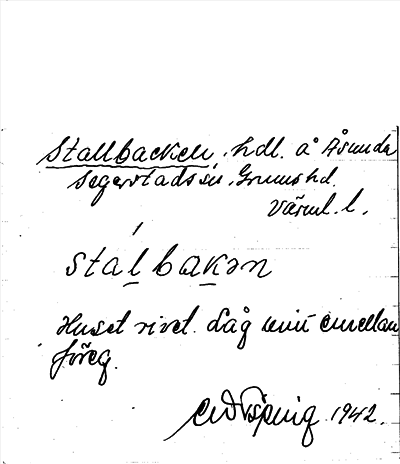 Stallbacken, hdl. å Åsunda
Segerstads sn, Grums hd.
Värml. l.
stal̲bak̲ən
Huset rivet. Låg emellan
föreg.
1942.